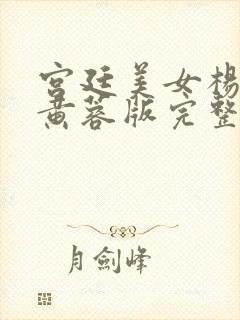 宫廷美女杨
黄蓉版完整
月剑峰